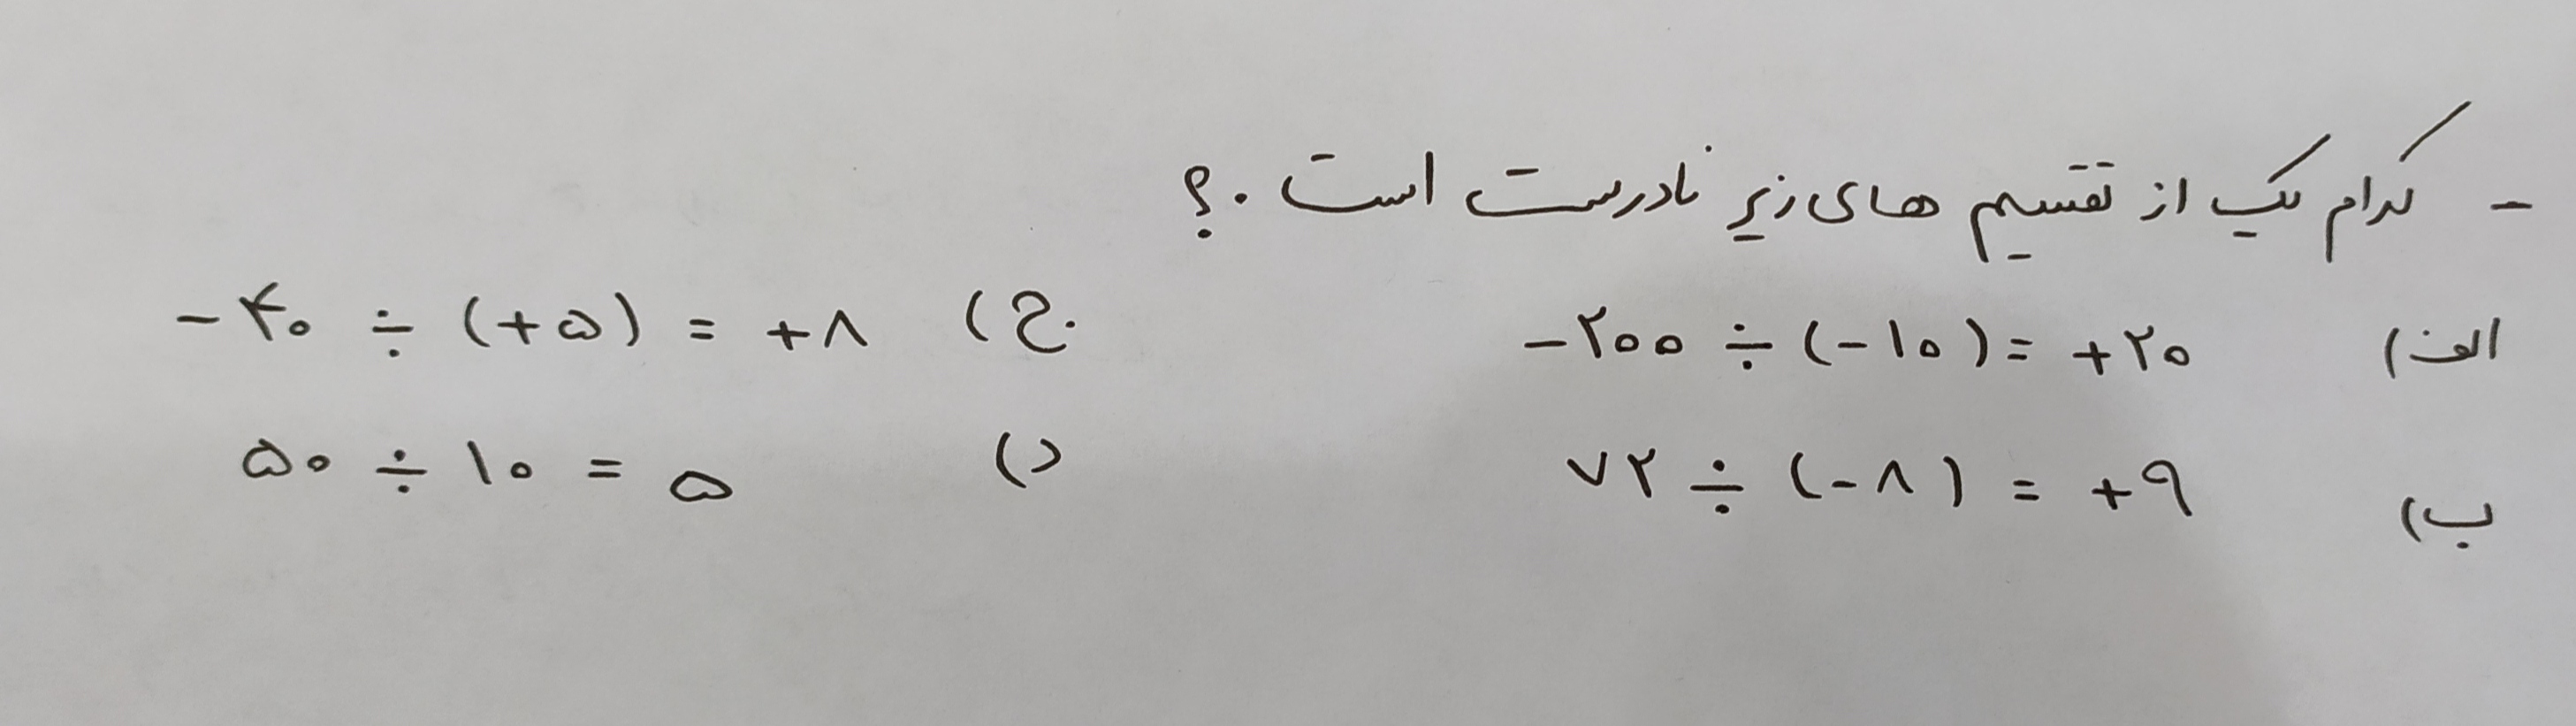 - کدام یک از تقسیم های زیر نادرست است .؟
الف) -۲۰۰ ÷ (-۱۰) = +۲۰
ج) -۴۰ ÷ (+۵) = +۸
ب) ۷۲ ÷ (-۸) = +۹
د) ۵۰ ÷ ۱۰ = ۵